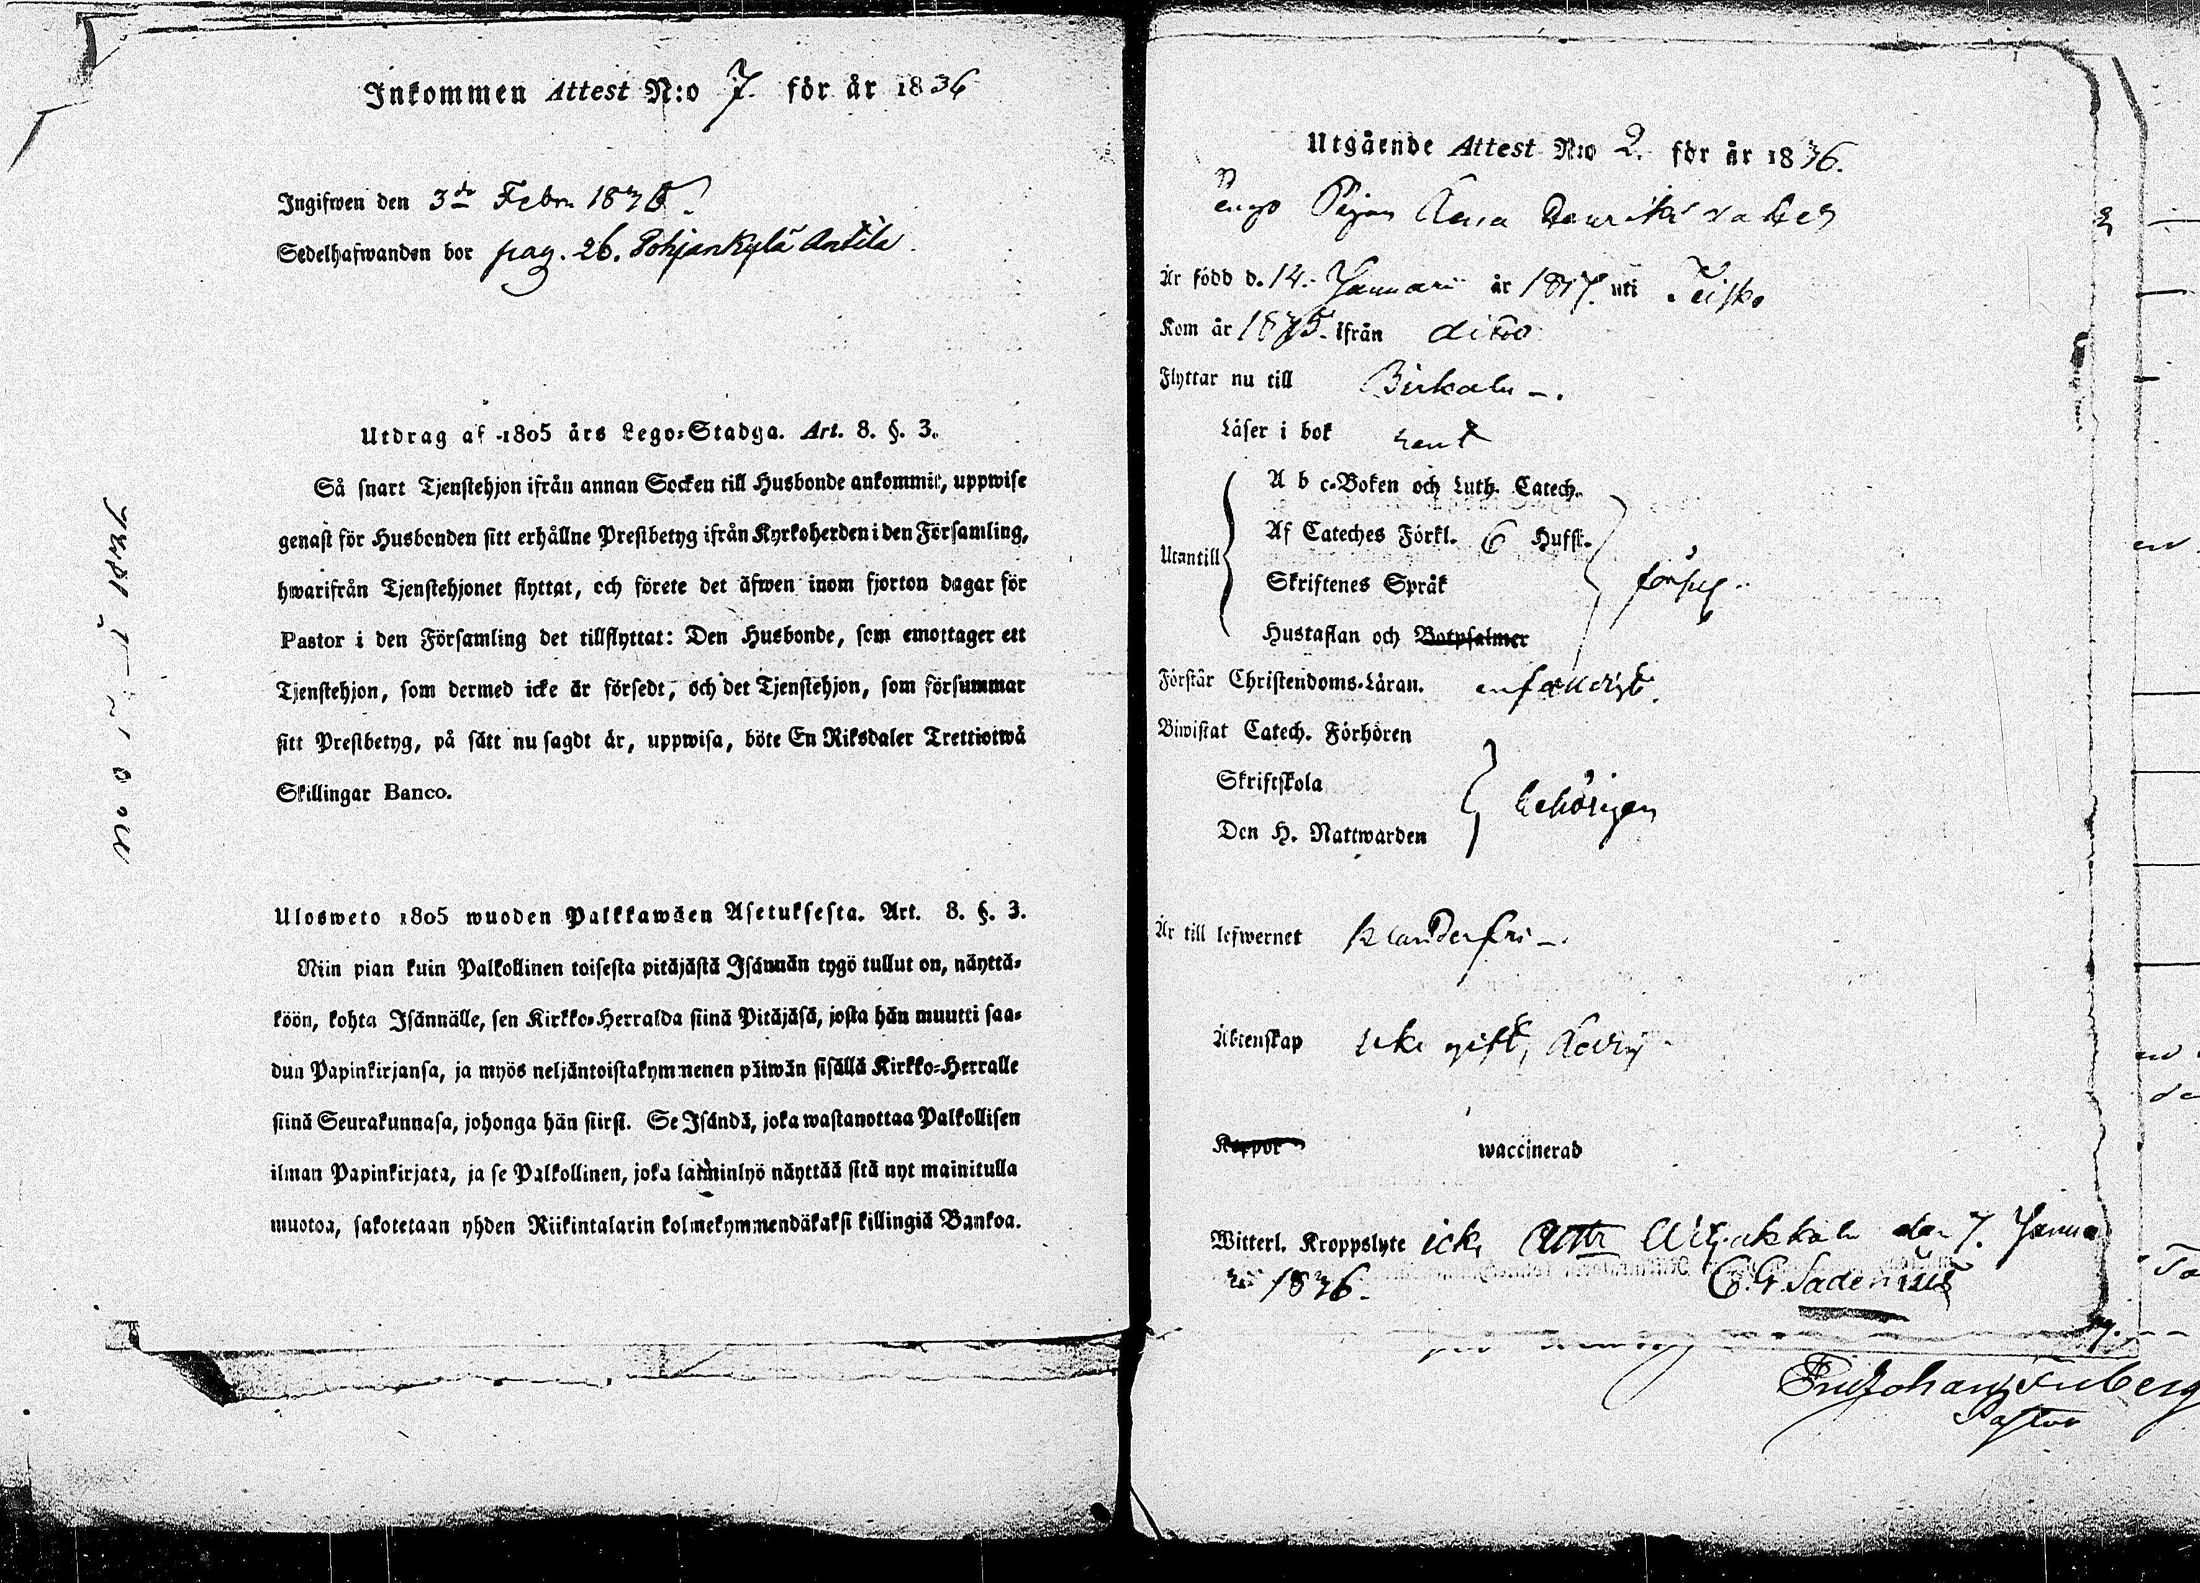 Inkommen Attest N:o 7. för år 1836
Ingifwen den 3de Febru 1836.
Sedelhafwanden bor pag. 26. Pohjankylä Antila.
Utdrag af 1805 års Lego-Stadga. Art. 8. §. 3.
Så snart Tjenstehjon ifrån annan Socken till Husbonde ankommit, uppwise
genast för Husbonden sitt erhållne Prestbetyg ifrån Kyrkoherden i den Församling,
hwarifrån Tjenstehjonet flyttat, och förete det äfwen inom fjorton dagar för
Pastor i den Församling det tillflyttat: Den Husbonde, som emottager ett
Tjenstehjon, som dermed icke är försedt, och det Tjenstehjon, som försummar
sitt Prestbetyg, på sätt nu sagdt är, uppwisa, böte En Riksdaler Trettiotwå
Skillingar Banco.
Ulosweto 1805 wuoden Palkkawäen Asetuksesta. Art. 8. §. 3.
Niin pian kuin Palkollinen toisesta pitäjästä Isännän tygö tullut on, näyttä-
köön, kohta Isännälle, sen Kirkko-Herralda siinä Pitäjäsä, josta hän muutti saa-
dun Papinkirjansa, ja myös neljäntoistakymmenen päiwän sisällä Kirkko-Herralle
siinä Seurakunnasa, johonga hän siirsi. Se Isändä, joka wastanottaa Palkollisen
ilman Papinkirjata, ja se Palkollinen, joka laiminlyö näyttää sitä nyt mainitulla
muotoa, sakotetaan yhden Riikintalarin kolmekymmendäkaksi killingiä Bankoa.
Utgående Attest N:o 2. för år 1836.
Pigan
Är född d. 14. Januarii år 1817. uti Teisko
Kom år 1835. ifrån dito
Flyttar nu till Birkala
Läser i bok rent
Utantill
A b c-Boken och Luth. Catech.
Af Cateches Förkl. 6 Hufst.
Skriftenes Språk
Hustaflan och Botpsalmer
försvg
Förstår Christendoms-Läran. enfaldigt.
Biwistat Catech. Förhören
Skriftskola
Den H. Nattwarden
behörigen
Är till lefwernet klanderfri
Äktenskap icke gift, ledig
Koppor waccinerad
Witterl. Kroppslyte icke den 7. Janua
rii 1836. C. G. Sadenius
Pastor